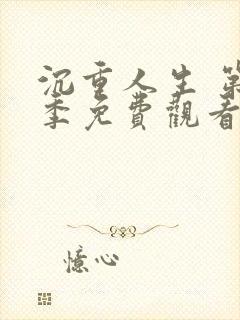 沉重人生 第
季免費觀看
憶心